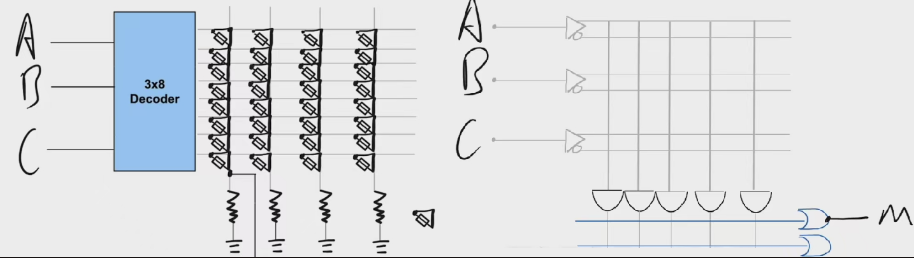 A
B
C
3x8
Decoder
A
B
C
M